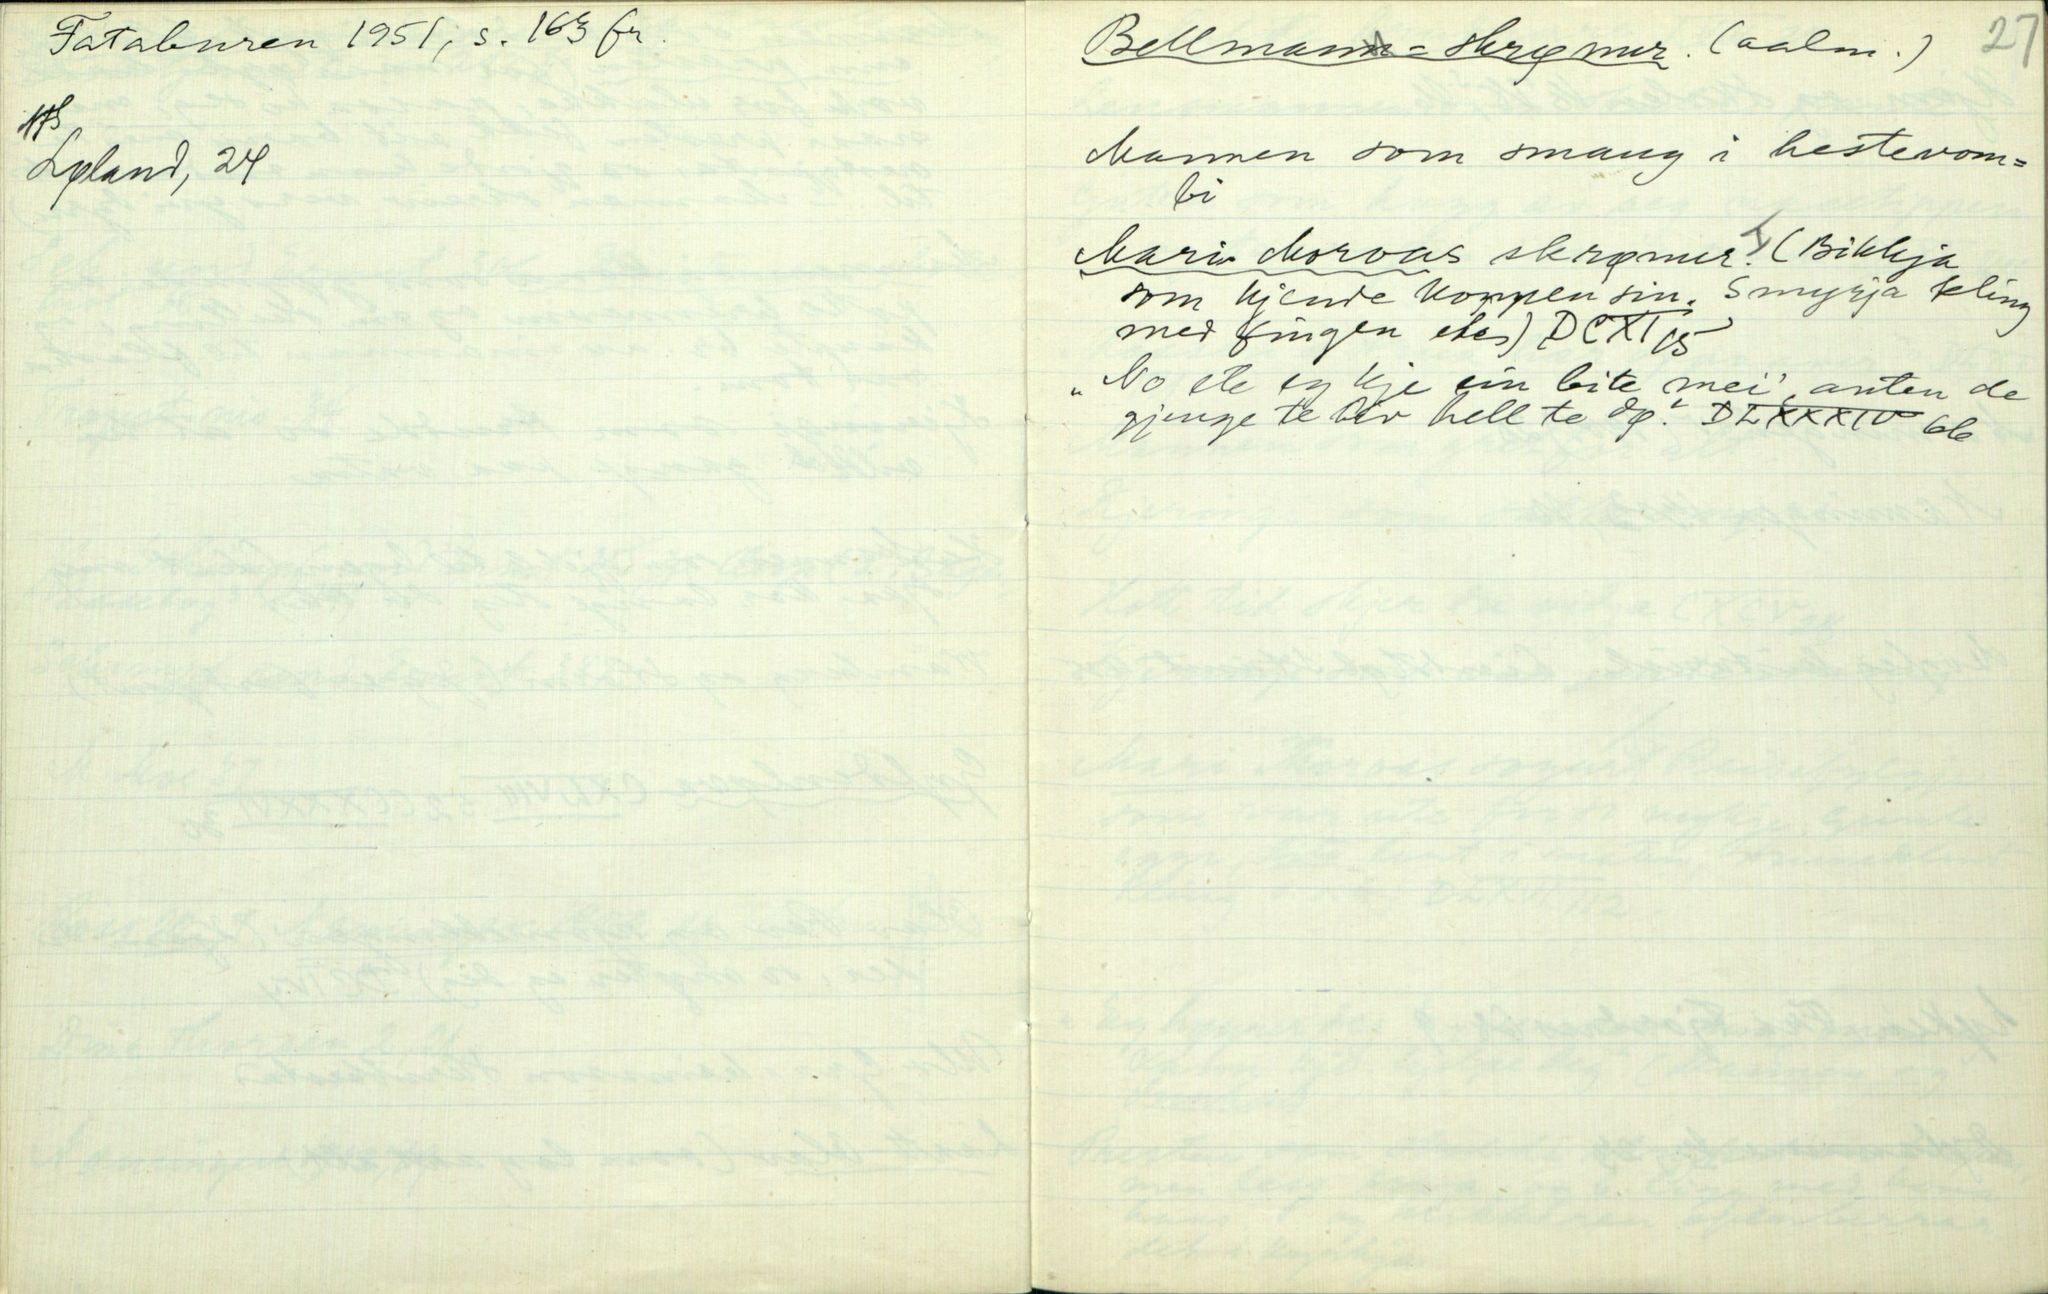 Fataburen 1951, s. 163 fr.
NFS
Løland, 24
27
Bellmann-skrømur. (aalm.)
Mannen som smaug i hestevom-
bi
Mari Moroas skrømur. (Bikkja
som kjende koppen sin. Smyrja kling
med fingen etc) DCXI 15
"No ete eg kje ein bite mei', anten de
gjenge te liv hell te dø." DLXXXIV 66